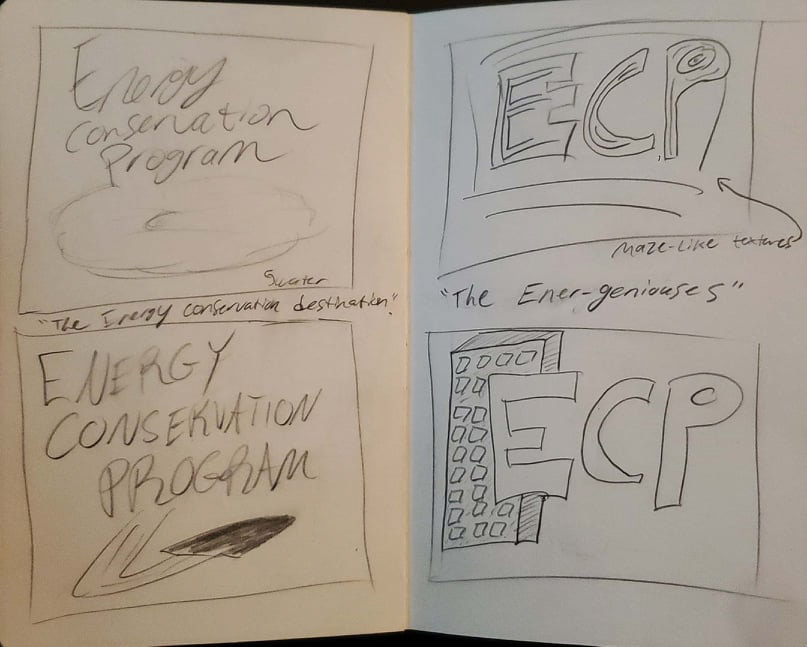 Energy
Conservation
Program
"The Energy conservation destination"
ENERGY
CONSERVATION
PROGRAM
ECP
Maze-like textures
"The Ener-geniouses"
ECP